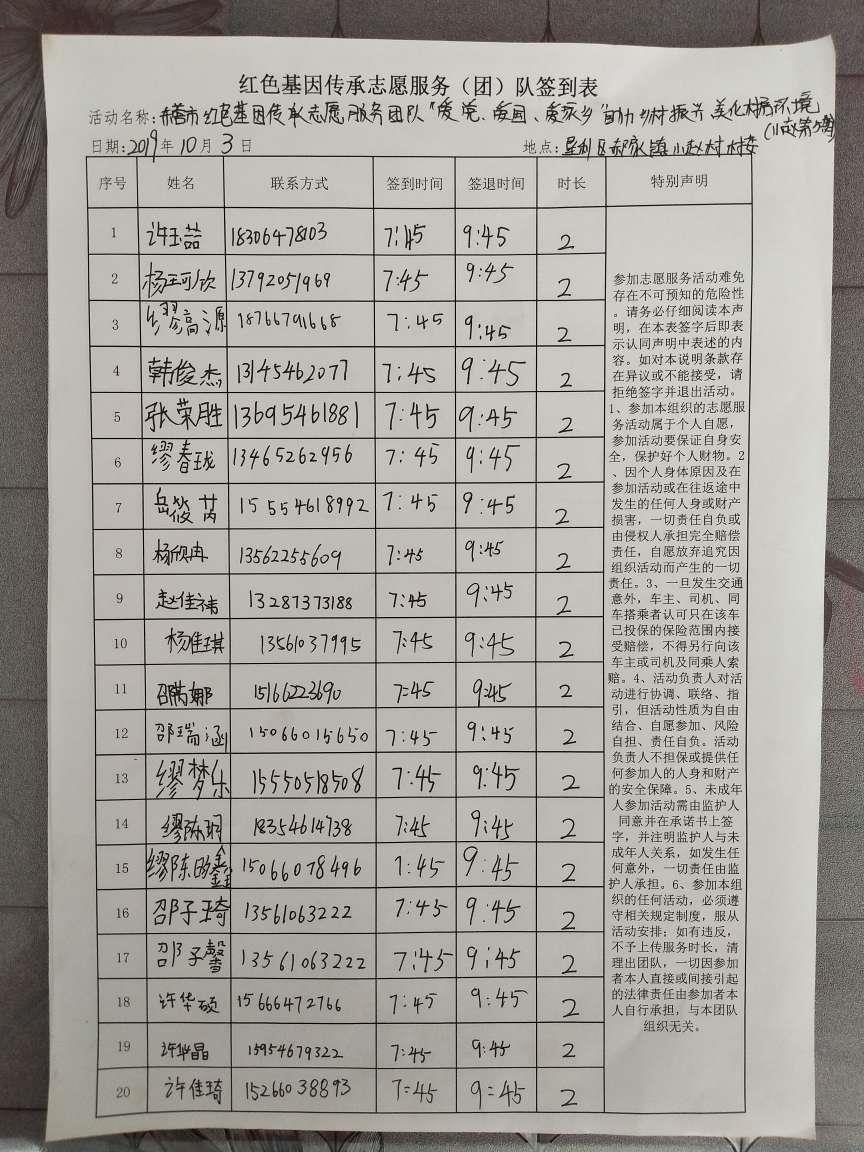 红色基因传承志愿服务（团）队签到表
活动名称: 市红色基因传承志愿服务团队"爱党、爱国、爱家乡"助力乡村振兴 美化村居环境
日期: 2019 年 10 月 3 日 地点: 垦利区郝家镇小赵村村委
序号 姓名 联系方式 签到时间 签退时间 时长 特别声明
1 许玉喆 18306478103 7:45 9:45 2
2 杨珂欣 13792051969 7:45 9:45 2
3 缪高源 18766791668 7:45 9:45 2
4 韩俊杰 13145462077 7:45 9:45 2
5 张荣胜 13695461881 7:45 9:45 2
6 缪春珑 13465262956 7:45 9:45 2
7 岳筱芮 15554618992 7:45 9:45 2
8 杨欣冉 13562255609 7:45 9:45 2
9 赵佳禧 13287373188 7:45 9:45 2
10 杨佳琪 13561037995 7:45 9:45 2
11 邵娜 15166223690 7:45 9:45 2
12 邵瑞涵 15066015650 7:45 9:45 2
13 缪梦乐 15550518508 7:45 9:45 2
14 缪陈玥 18354614738 7:45 9:45 2
15 缪陈鑫 15066078496 7:45 9:45 2
16 邵子琦 13561063222 7:45 9:45 2
17 邵子馨 13561063222 7:45 9:45 2
18 许华硕 15666472766 7:45 9:45 2
19 许晶 15954679322 7:45 9:45 2
20 许佳琦 15266038893 7=45 9=45 2
参加志愿服务活动难免
存在不可预知的危险性
。请务必仔细阅读本声
明，在本表签字后即表
示认同声明中表述的内
容。如对本说明条款存
在异议或不能接受，请
拒绝签字并退出活动。
1、参加本组织的志愿服
务活动属于个人自愿，
参加活动要保证自身安
全，保护好个人财物。2
、因个人身体原因及在
参加活动或在往返途中
发生的任何人身或财产
损害，一切责任自负或
由侵权人承担完全赔偿
责任，自愿放弃追究因
组织活动而产生的一切
责任。3、一旦发生交通
意外，车主、司机、同
车搭乘者认可只在该车
已投保的保险范围内接
受赔偿，不得另行向该
车主或司机及同乘人索
赔。4、活动负责人对活
动进行协调、联络、指
引，但活动性质为自由
结合、自愿参加、风险
自担、责任自负。活动
负责人不担保或提供任
何参加人的人身和财产
的安全保障。5、未成年
人参加活动需由监护人
同意并在承诺书上签
字，并注明监护人与未
成年人关系，如发生任
何意外，一切责任由监
护人承担。6、参加本组
织的任何活动，必须遵
守相关规定制度，服从
活动安排；如有违反，
不予上传服务时长，清
理出团队，一切因参加
者本人直接或间接引起
的法律责任由参加者本
人自行承担，与本团队
组织无关。